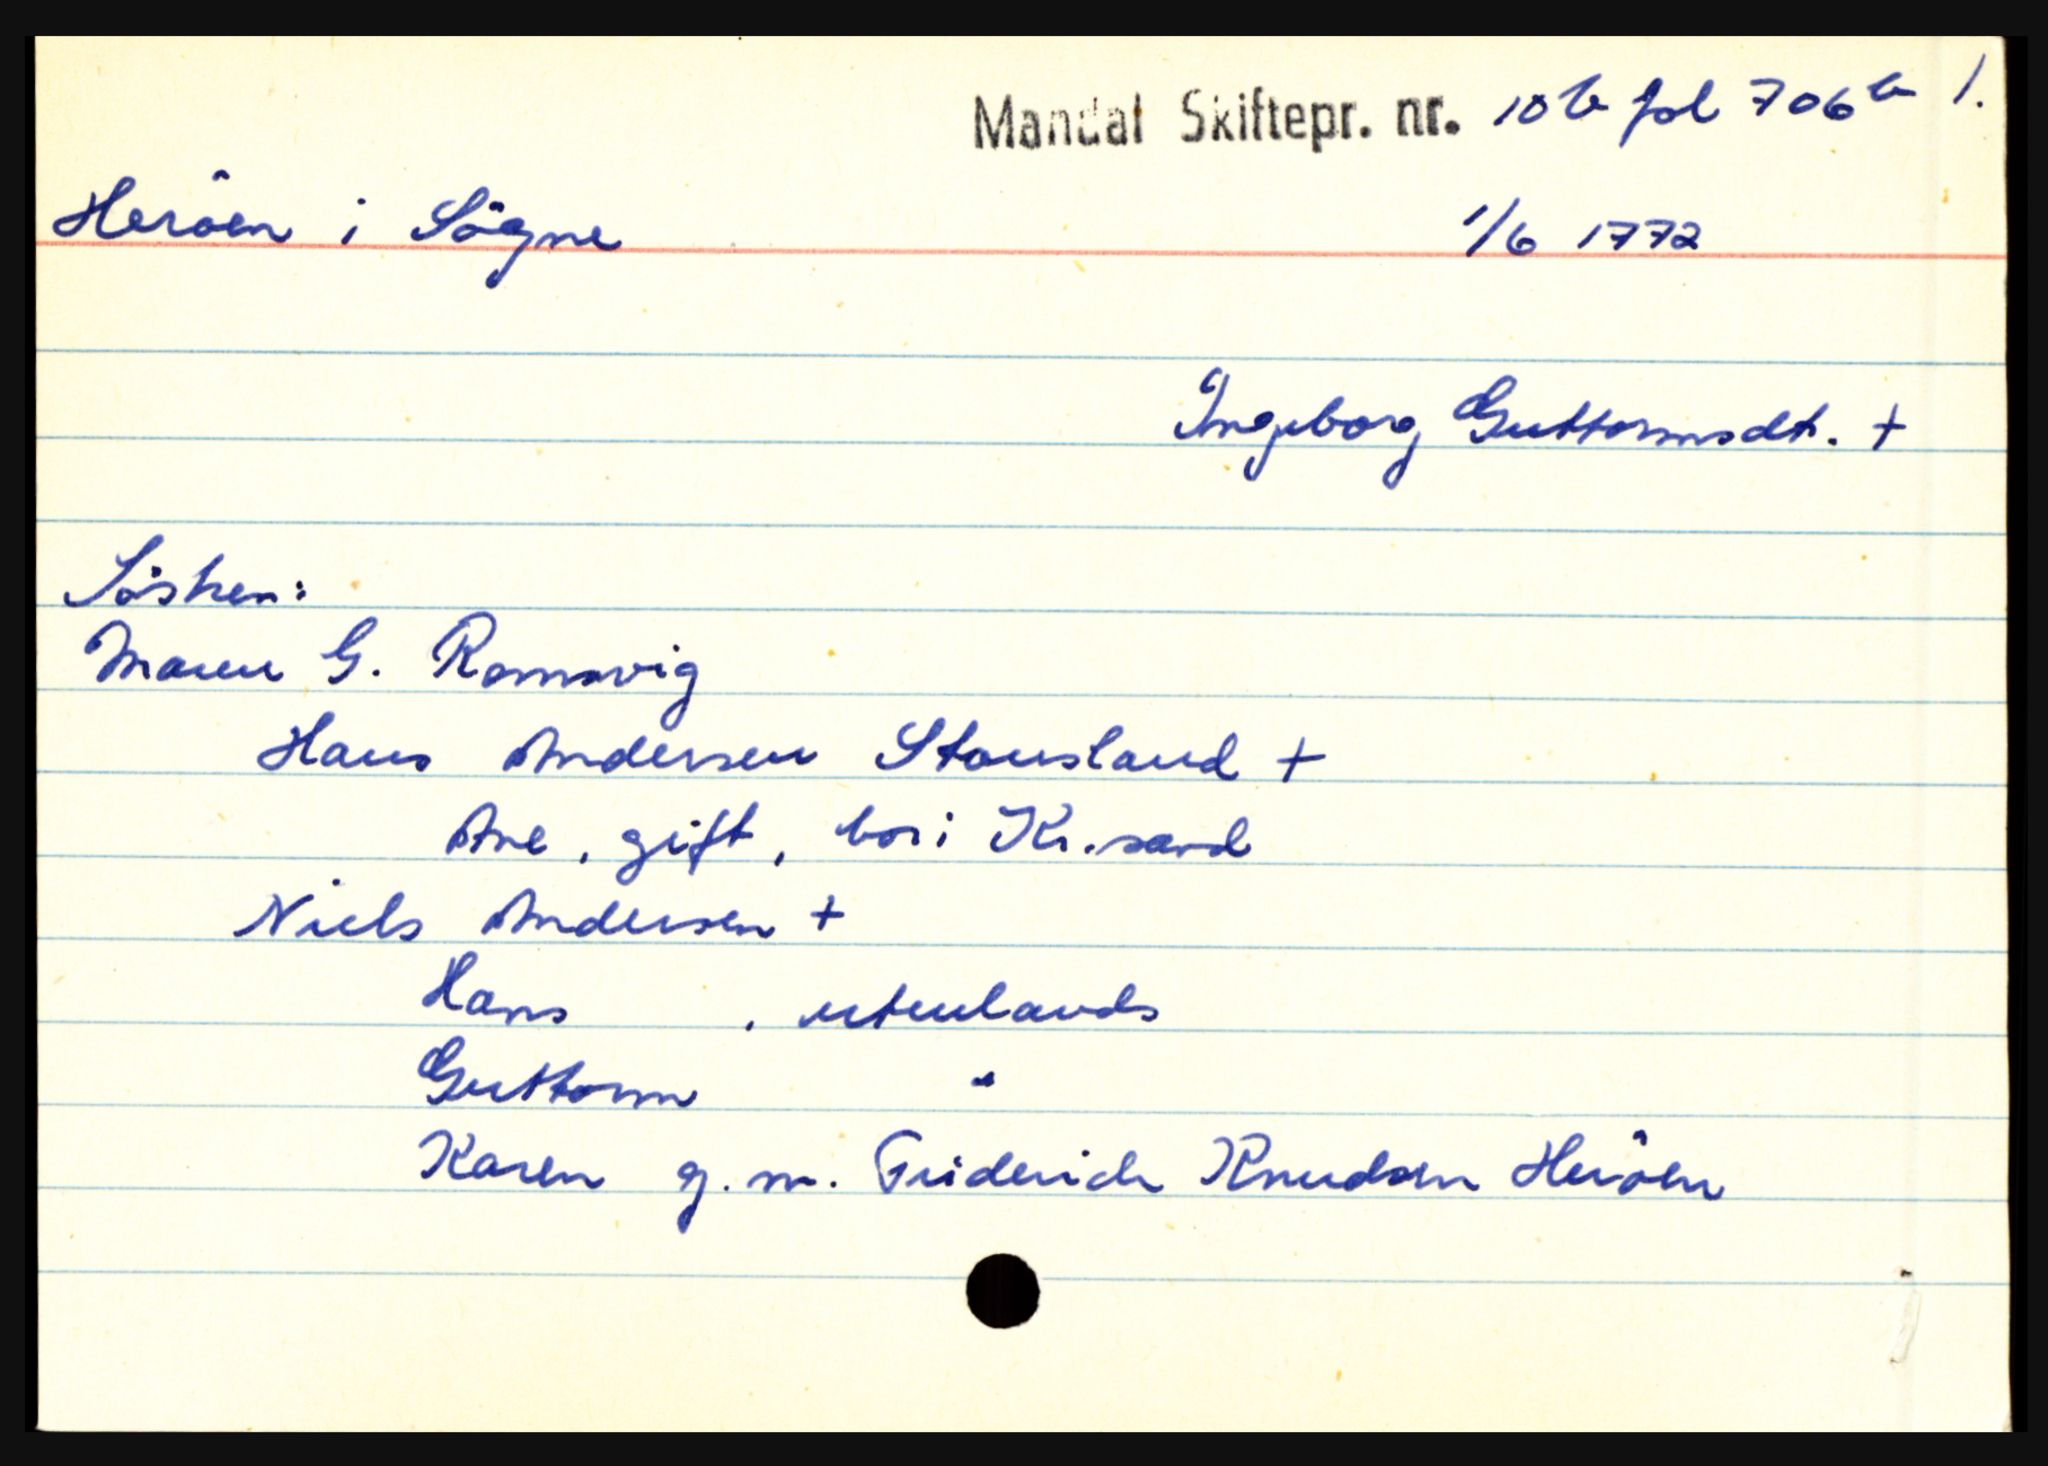 Mandal Skiftepr. nr. 10 b fol 706 b 1.
Heröen i Sögne 1/6 1772
Ingeborg Guttormsdt. +
Sösken:
Maren G. Romsvig
Hans Andersen Stousland +
Ane, gift, bor i Kr.sand
Niels Andersen +
Hans , utenlands
Guttorm "
Karen g. m. Friderich Knudsen Heröen